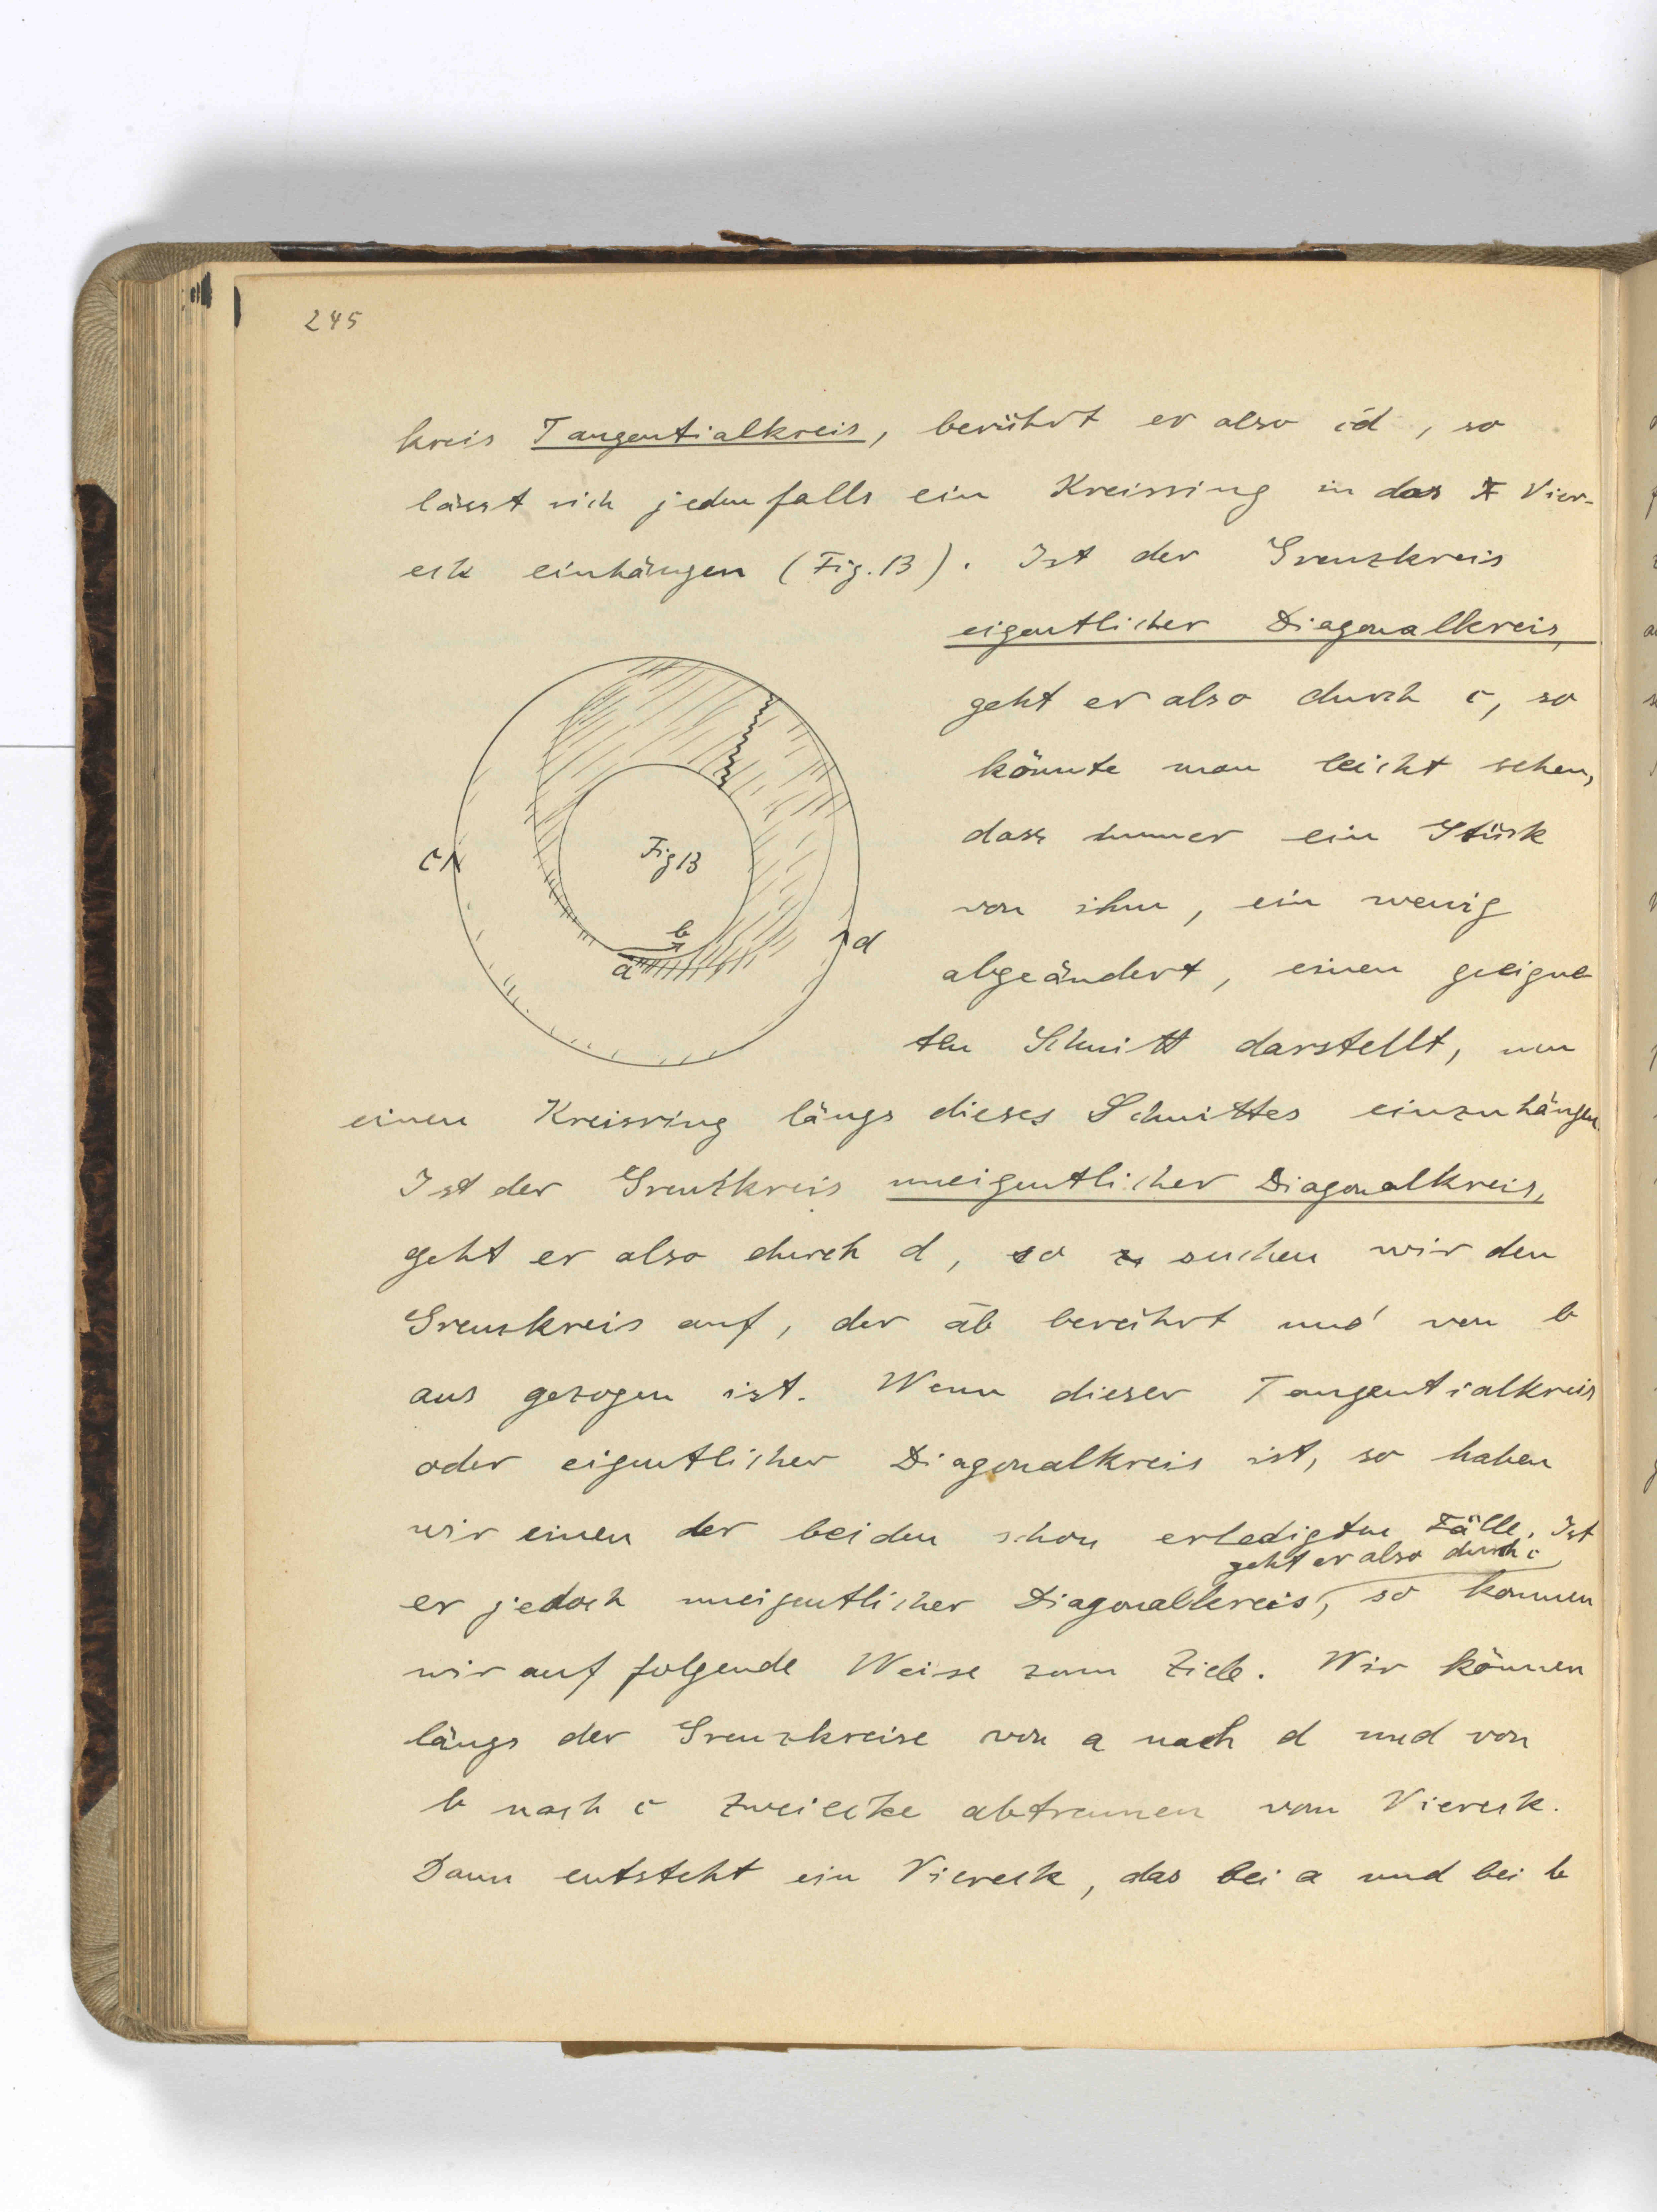 245
kreis Tangentialkreis, berührt er also c̄d, so
lässt sich jedenfalls ein Kreisring in das Vier-
eck einhängen (Fig. 13). Ist der Grenzkreis
eigentlicher Diagonalkreis,
geht er also durch c, so
könnte man leicht sehen,
dass immer ein Stück
von ihm, ein wenig
abgeändert, einen geeigne
ten Schnitt darstellt, um
c
Fig 13
b
a
d
einen Kreisring längs dieses Schnittes einzuhängen.
Ist der Grenzkreis uneigentlicher Diagonalkreis,
geht er also durch d, so suchen wir den
Grenzkreis auf, der āb berührt und von b
aus gezogen ist. Wenn dieser Tangentialkreis
oder eigentlicher Diagonalkreis ist, so haben
wir einen der beiden schon erledigten Fälle. Ist
geht er also durch c
er jedoch uneigentlicher Diagonalkreis, so kommen
wir auf folgende Weise zum Ziele. Wir können
längs der Grenzkreise von a nach d und von
b nach c Zweiecke abtrennen vom Viereck.
Dann entsteht ein Viereck, das bei a und bei b